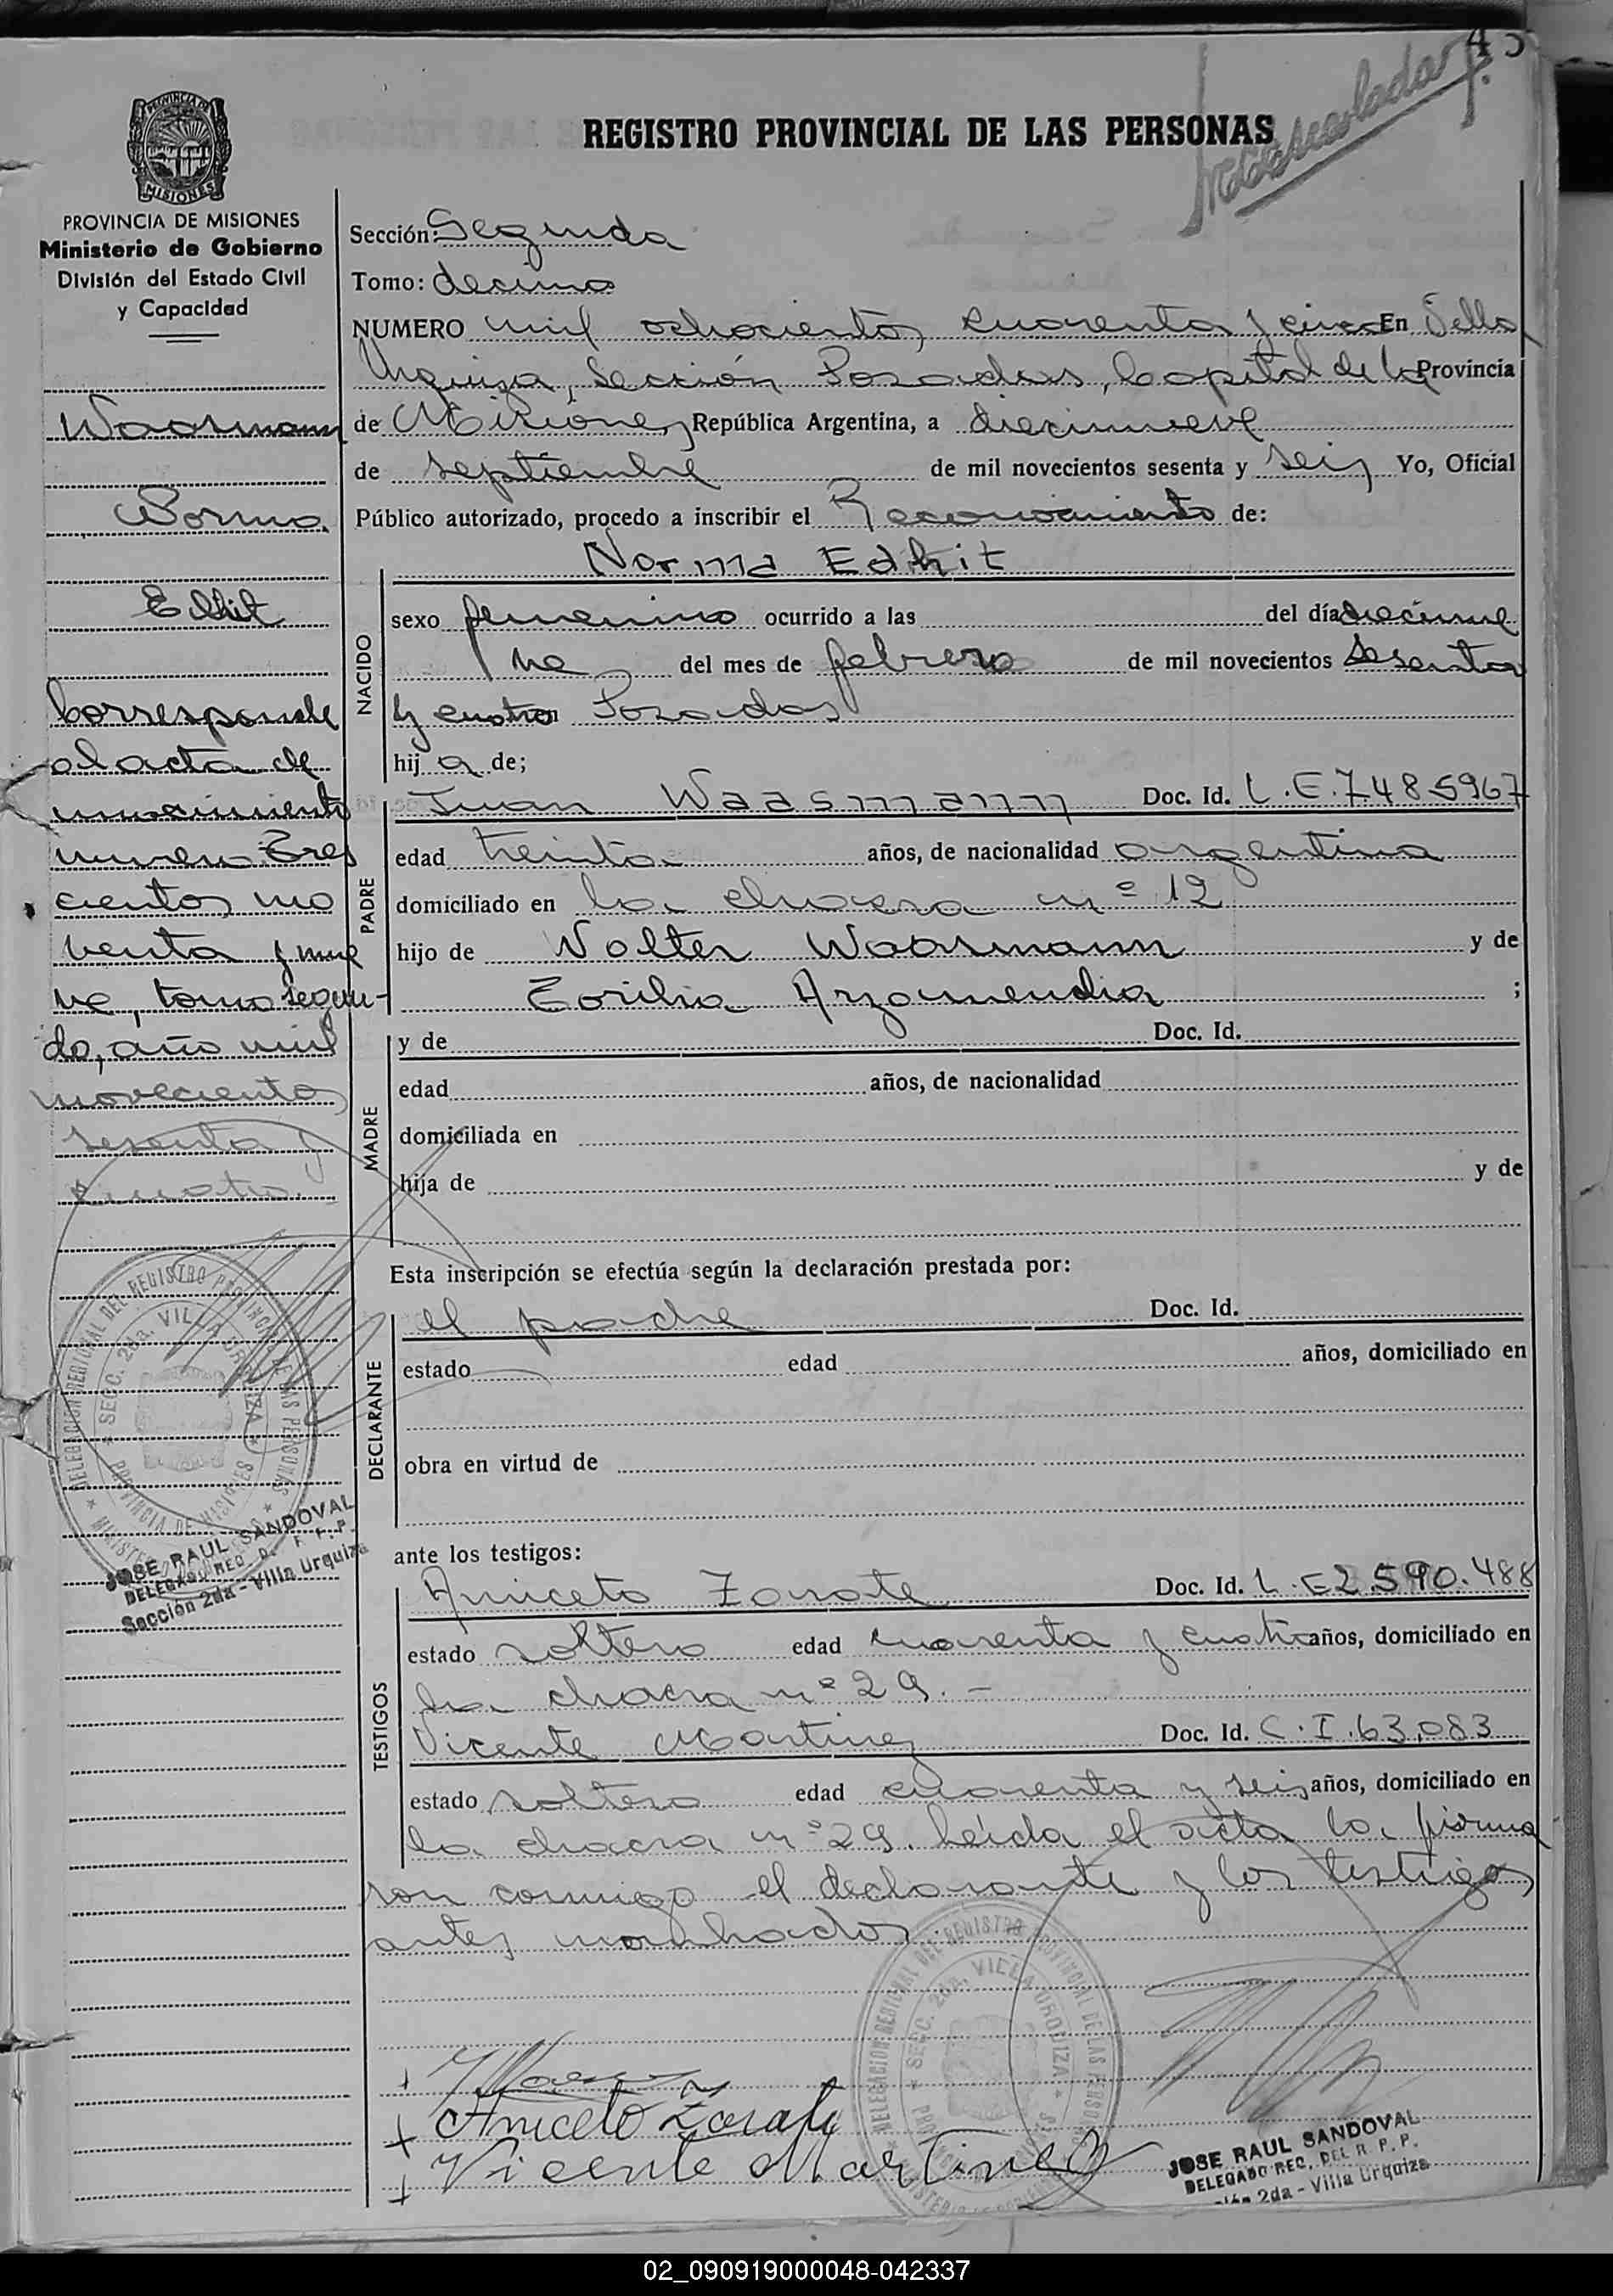 45
PROVINCIA DE
MISIONES
REGISTRO PROVINCIAL DE LAS PERSONAS
PROVINCIA DE MISIONES
Ministerio de Gobierno
División del Estado Civil
y Capacidad
Waasmann
Norma
Edhit
Corresponde
al acta de
nacimiento
numero Tres
cientos no
venta y nue
ve, tomo segun-
do, año mil
novecientos
sesenta y
cuatro.
DELEGACION REGIONAL DEL REGISTRO PROVINCIAL DE LAS PERSONAS
SECC. 2da. VILLA URQUIZA
PROVINCIA DE MISIONES
JOSE RAUL SANDOVAL
DELEGADO REG. D.
Sección 2da - Villa Urquiza
Sección: Segunda
Tomo: decimo
NUMERO mil ochocientos cuarenta y cinco En Villa
Urquiza, Sección Posadas, Capital de la Provincia
de Misiones, República Argentina, a diecinueve
de septiembre de mil novecientos sesenta y seis Yo, Oficial
Público autorizado, procedo a inscribir el Reconocimiento de:
Norma Edhit
NACIDO
sexo femenino ocurrido a las del día diecinue
ve del mes de febrero de mil novecientos sesenta
y cuatro Posadas
hij a de;
PADRE
Juan Waasmann Doc. Id. L.E. 7485967
edad treinta años, de nacionalidad argentina
domiciliado en la chacra nº 12
hijo de Walter Waasmann y de
Zorilia Arzamendia ;
MADRE
y de Doc. Id.
edad años, de nacionalidad
domiciliada en
hija de y de
Esta inscripción se efectúa según la declaración prestada por:
DECLARANTE
el padre Doc. Id.
estado edad años, domiciliado en
obra en virtud de
ante los testigos:
TESTIGOS
Aniceto Zarate Doc. Id. L.E 2.590.488
estado soltero edad cuarenta y cuatro años, domiciliado en
la chacra nº 29.-
Vicente Martinez Doc. Id. C.I. 63.083
estado soltero edad cuarenta y seis años, domiciliado en
la chacra nº 29. Leída el acta la firma
ron conmigo el declarante y los testigos
antes
DELEGACION REGIONAL DEL REGISTRO PROVINCIAL DE LAS PERSONAS
SECC. 2da. VILLA URQUIZA
Aniceto Zarate
Vicente Martinez
JOSE RAUL SANDOVAL
DELEGADO REG. DEL R. P. P.
2da - Villa Urquiza
02_090919000048-042337